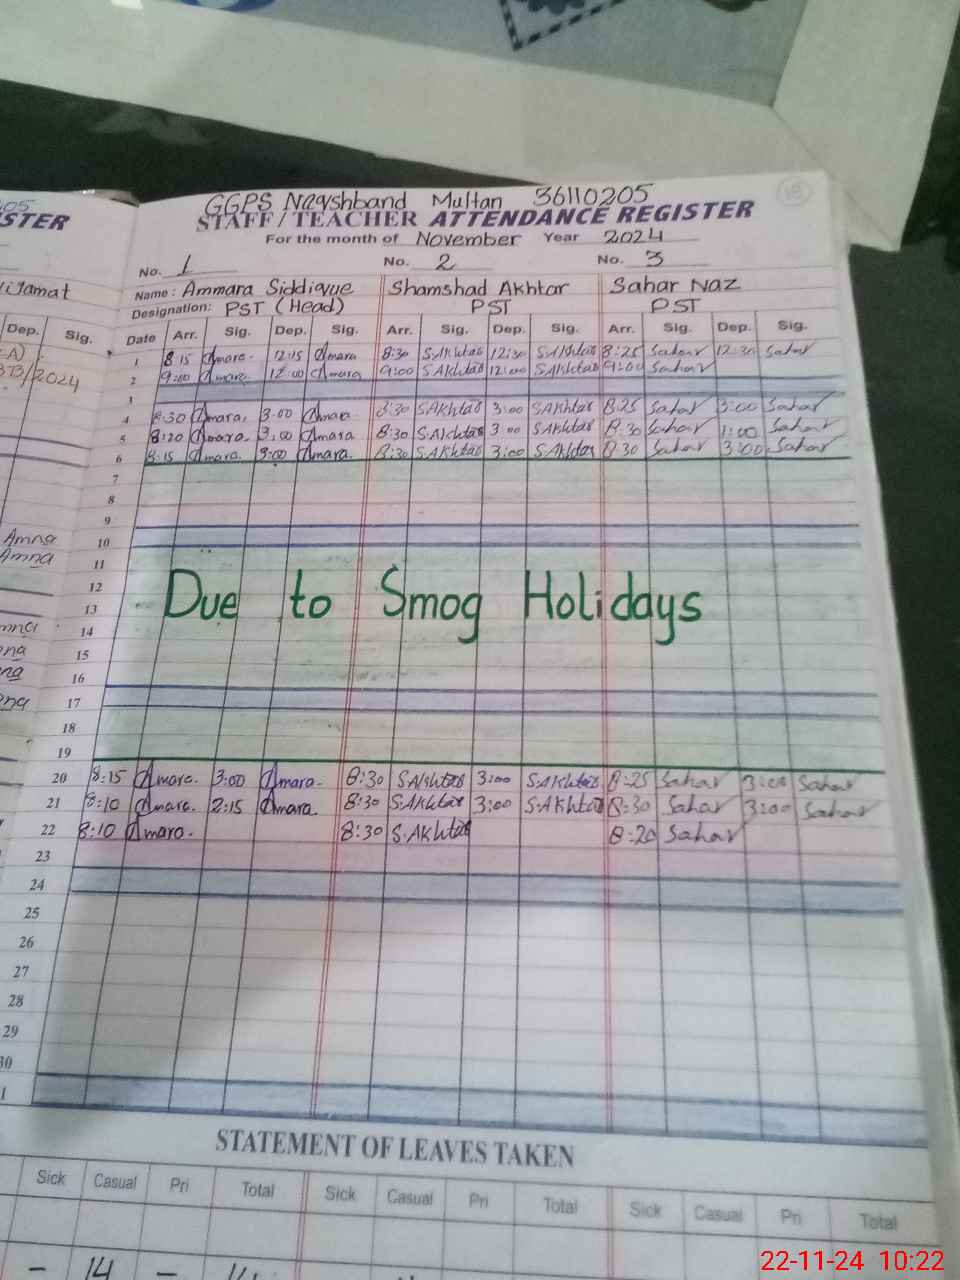 GGPS Naqshband Multan 36110205
18
STAFF/TEACHER ATTENDANCE REGISTER
For the month of November Year 2024
No. 1 No. 2 No. 3
Name: Ammara Siddique Shamshad Akhtar Sahar Naz
Designation: PST (Head) PST PST
Date Arr. Sig. Dep. Sig. Arr. Sig. Dep. Sig. Arr. Sig. Dep. Sig.
1 8:15 Amara. 12:15 Amara 8:30 S.Akhtar 12:30 S.Akhtar 8:25 Sahar 12:30 Sahar
2 9:00 Amara. 12:00 Amara. 9:00 S.Akhtar 12:00 S.Akhtar 9:00 Sahar
3
4 8:30 Amara. 3:00 Amara. 8:30 S.Akhtar 3:00 S.Akhtar 8:25 Sahar 3:00 Sahar
5 8:20 Amara. 3:00 Amara 8:30 S.Akhtar 3:00 S.Akhtar 8:30 Sahar 1:00 Sahar
6 8:15 Amara. 3:00 Amara. 8:30 S.Akhtar 3:00 S.Akhtar 8:30 Sahar 3:00 Sahar
7
8
9
10
11
12
Due to Smog Holidays
13
14
15
16
17
18
19
20 8:15 Amara. 3:00 Amara. 8:30 S.Akhtar 3:00 S.Akhtar 8:25 Sahar 3:00 Sahar
21 8:10 Amara. 2:15 Amara. 8:30 S.Akhtar 3:00 S.Akhtar 8:30 Sahar 3:00 Sahar
22 8:10 Amara. 8:30 S.Akhtar 8:20 Sahar
23
24
25
26
27
28
29
30
STATEMENT OF LEAVES TAKEN
Sick Casual Pri Total Sick Casual Pri Total Sick Casual Pri Total
- 14 -
22-11-24 10:22